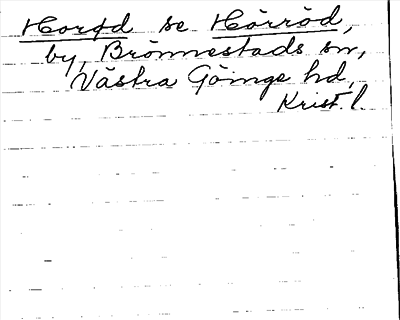 Horød se Hörröd,
by, Brönnestads sn,
Västra Göinge hd,
Krist. l.